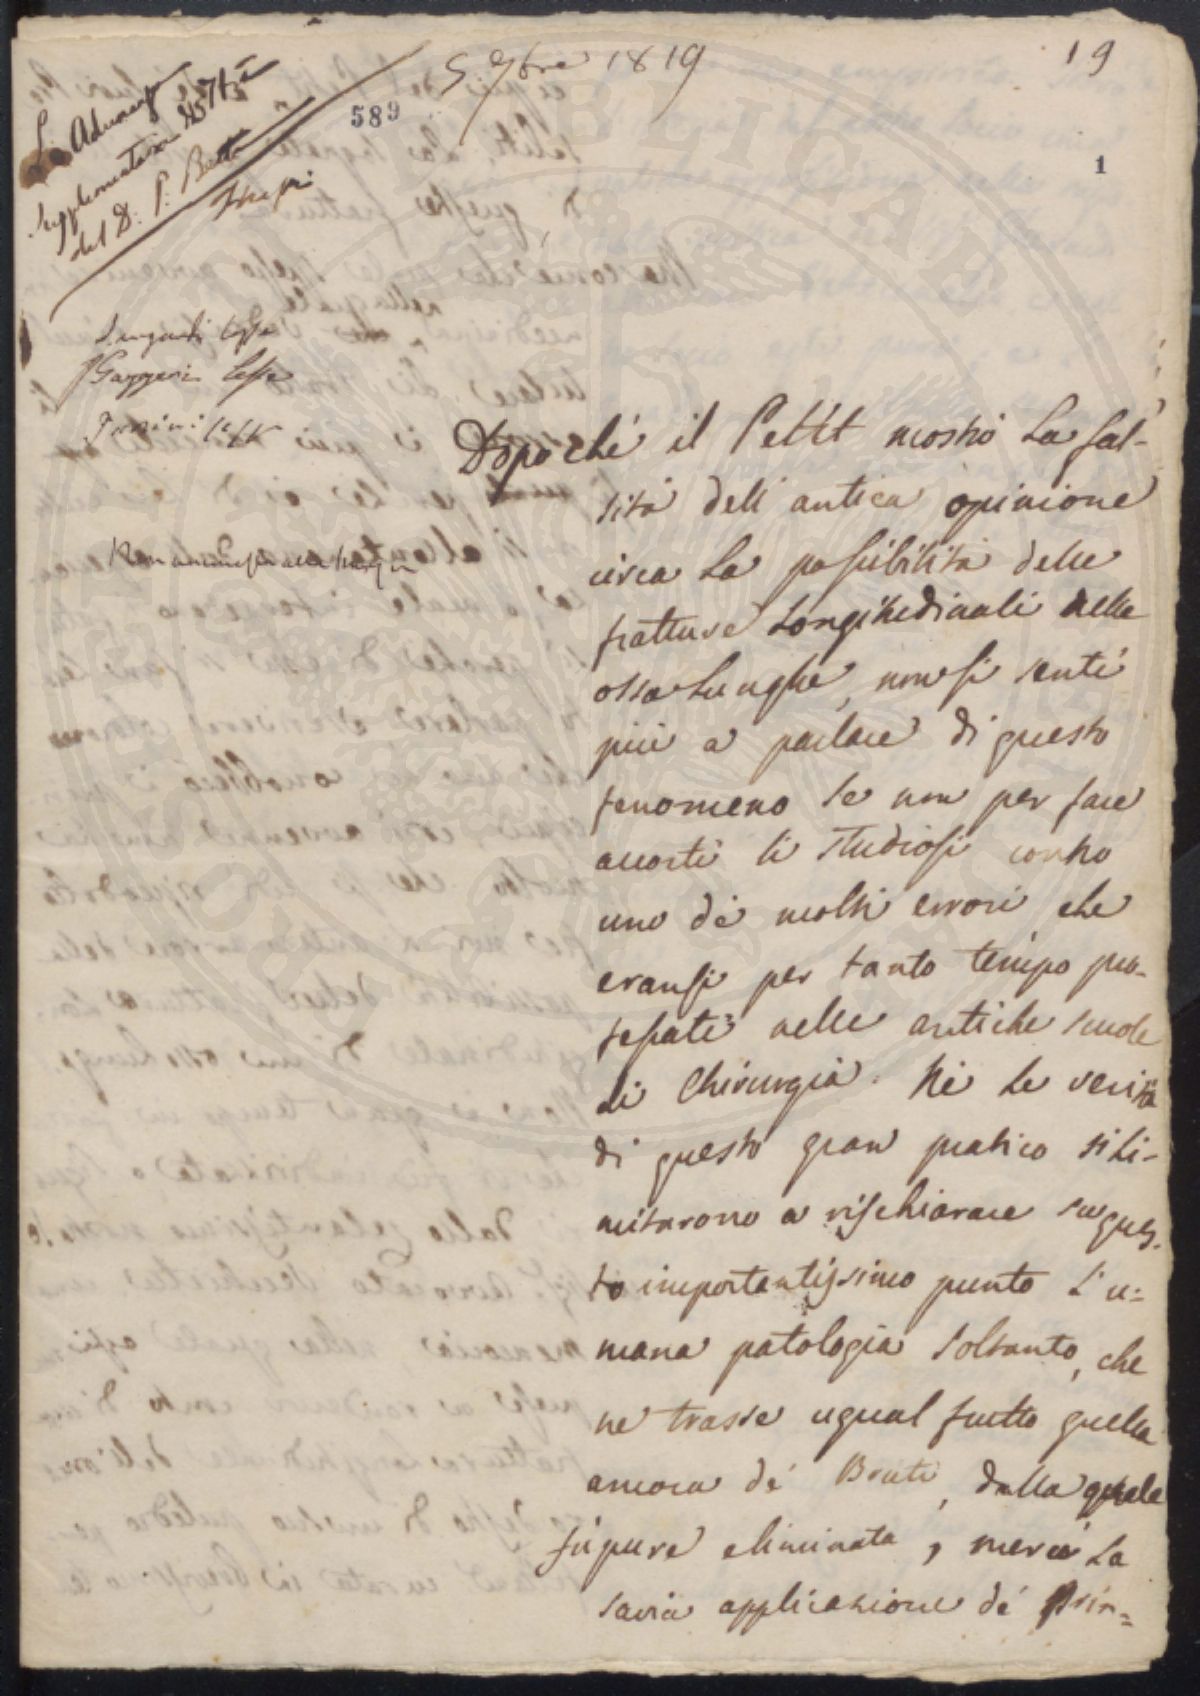 5 7bre 1819
19
589
1
La Adunanza
Supplementaria
del D: P: Betti
Dopo ché il Petit mostrò La fal-
sità dell' antica opinione
circa La possibilità delle
fratture Longitudinali delle
ossa Lunghe, non si sentì
più a parlare di questo
fenomeno se non per fare
accorti li Studiosi contro
uno dé molti errori che
eransi per tanto tempo pro-
fessati nelle antiche scuole
di Chirurgia. Né Le verità
di questo gran pratico si Li-
mitarono a rischiarare su ques-
to importantissimo punto L'u=
mana patologia Soltanto, che
ne trasse ugual frutto quella
ancora dé Bruti, dalla quale
fù pure eliminata, mercè La
savia applicazione dé prin=